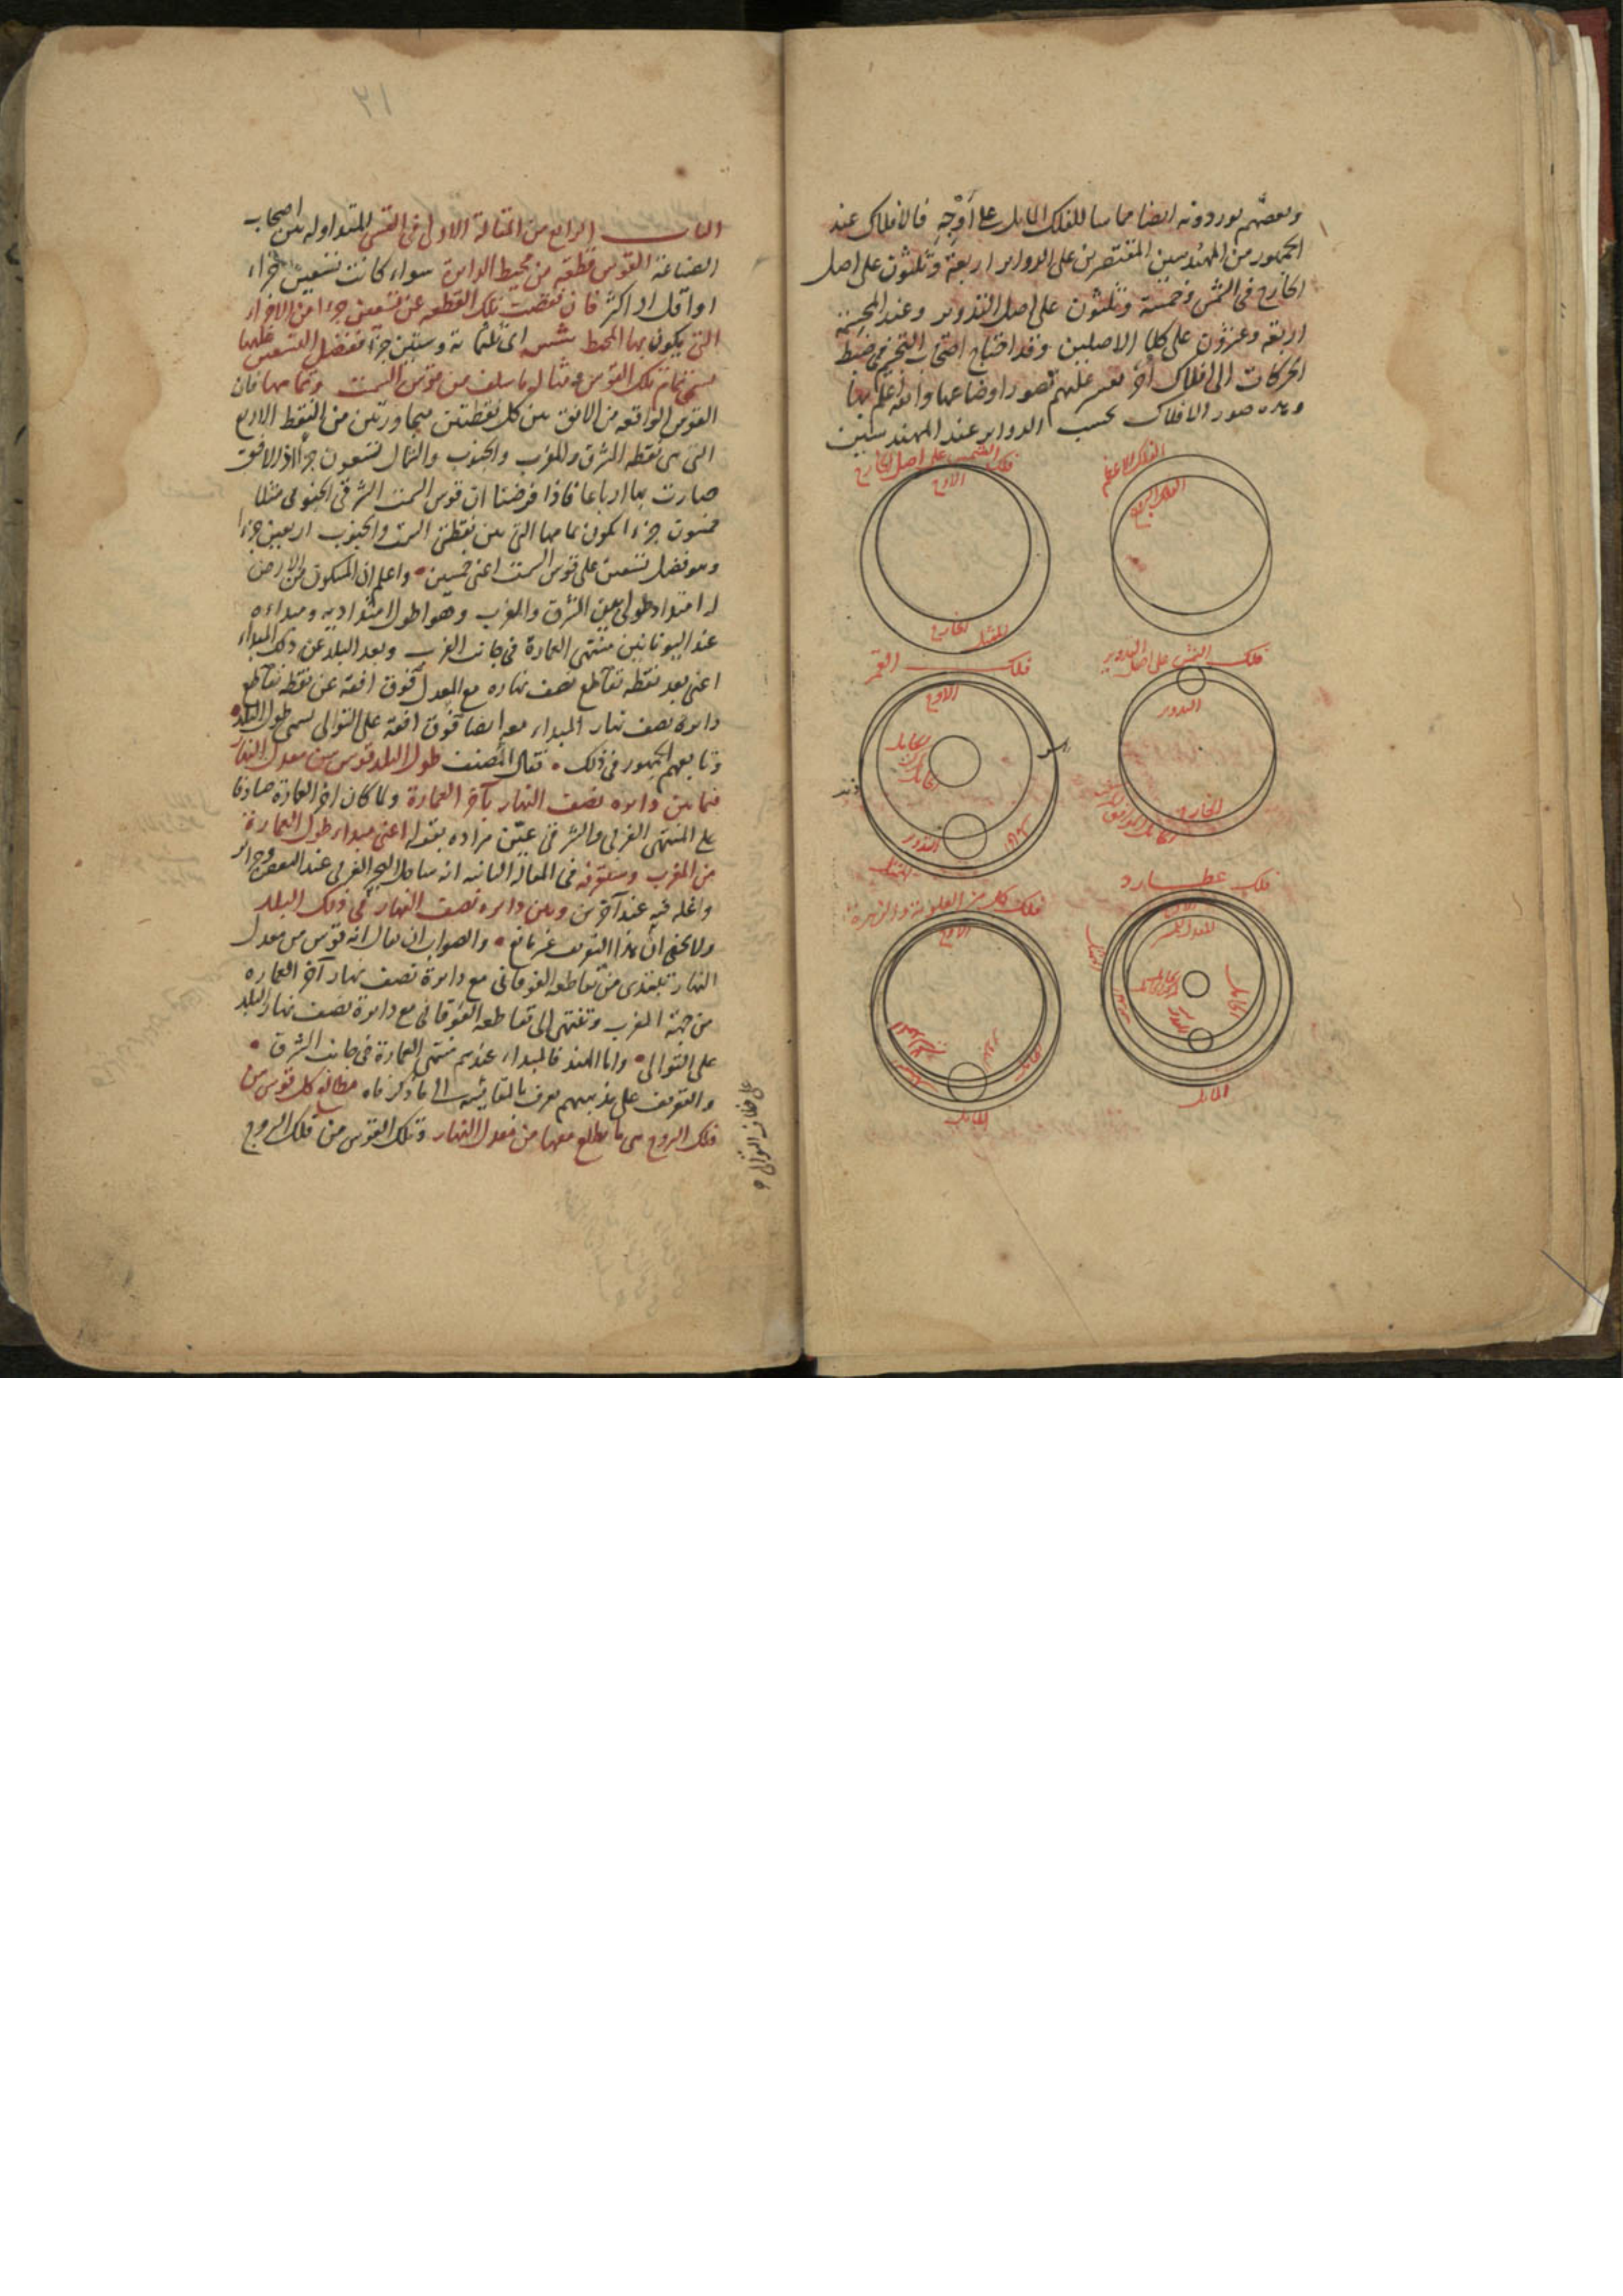 وبعضهم يوردونه ايضا مماسا للفلك المايل على أوجه فالافلاك عند
الجمهور من المهندسين المقتصرين على الدواير اربعة وثلثون على اصل
الخارج في الشمس وخمسة وثلثون على اصل التدوير وعند المجسمة
اربعة وعشرون على كلا الاصلين وقد احتاج اصحاب في ضبط
الحركات الى افلاك أخر تصور اوضاعها والله اعلم بها
وهذه صور الافلاك بحسب الدواير عند المهندسين
الفلك الاعظم
فلك البروج
فلك الشمس على اصل الخارج
الاوج
الخارج
الممثل
فلك الشمس على اصل التدوير
التدوير
فلك القمر
الاوج
التدوير
فلك عطارد
التدوير
المايل
فلك كل من العلوية والزهرة
الاوج
المايل
٢١
الباب الرابع من المقالة الاولى في القسي المتداولة بين اصحاب
الصناعة القوس قطعة من محيط الدايرة سواء كانت تسعين جزاء
او اقل او اكثر فان نقصت تلك القطعة عن تسعين جزءا من الاجزاء
التي يكون بها المحيط شس اى ثلثمائة وستين جزءا ففضل التسعين عليها
يسمى تمام تلك القوس مثاله ما سلف من قوس السمت وتمامها فان
القوس الواقعة من الافق بين كل نقطتين متجاورتين من النقط الاربع
التي هي نقطة المشرق والمغرب والجنوب والشمال تسعون جزءا اذ الافق
صارت بها ارباعا فاذا فرضنا ان قوس السمت الشرقي الجنوبي مثلا
خمسون جزءا يكون تمامها التي بين نقطتي السمت والجنوب اربعين جزءا
وهو فضل تسعين على قوس السمت اعنى خمسين واعلم ان المسكون من الارض
له امتداد طولي بين المشرق والمغرب وهو اطول امتداديه ومبداءه
عند اليونانيين منتهى العمارة في جانب الغرب وبعد البلد عن ذلك المبداء
اعنى بعد نقطة تقاطع نصف نهاره مع المعدل فوق افقه عن نقطة تقاطع
دايرة نصف نهار المبداء معه ايضا فوق افقه على التوالي يسمى طول البلد
وتابعهم الجمهور في ذلك فقال المصنف طول البلد قوس من معدل النهار
فيما بين دايرة نصف النهار بآخر العمارة ولما كان اخر العمارة صادقا
على المنتهى الغربي والشرقي عيّن مراده بقوله اعنى مبداء طول العمارة
من المغرب وستعرفه في المقالة الثانية انه ساحل البحر الغربي عند البعض وجزاير
واغلة فيه عند آخرين وبين دايرة نصف النهار في ذلك البلد
ولا يخفى ان هذا التعريف غير مانع والصواب ان يقال انه قوس من معدل
النهار تبتدى من تقاطعه الفوقاني مع دايرة نصف نهار آخر العمارة
من جهة المغرب وتنتهى الى تقاطعه الفوقاني مع دايرة نصف نهار البلد
على التوالي واما الهند فالمبداء عندهم منتهى العمارة في جانب الشرق
والتعريف على مذهبهم يعرف بالمقايسة الى ما ذكرناه مطالع كل قوس من
فلك البروج هي ما يطلع معها من معدل النهار وتلك القوس من فلك البروج